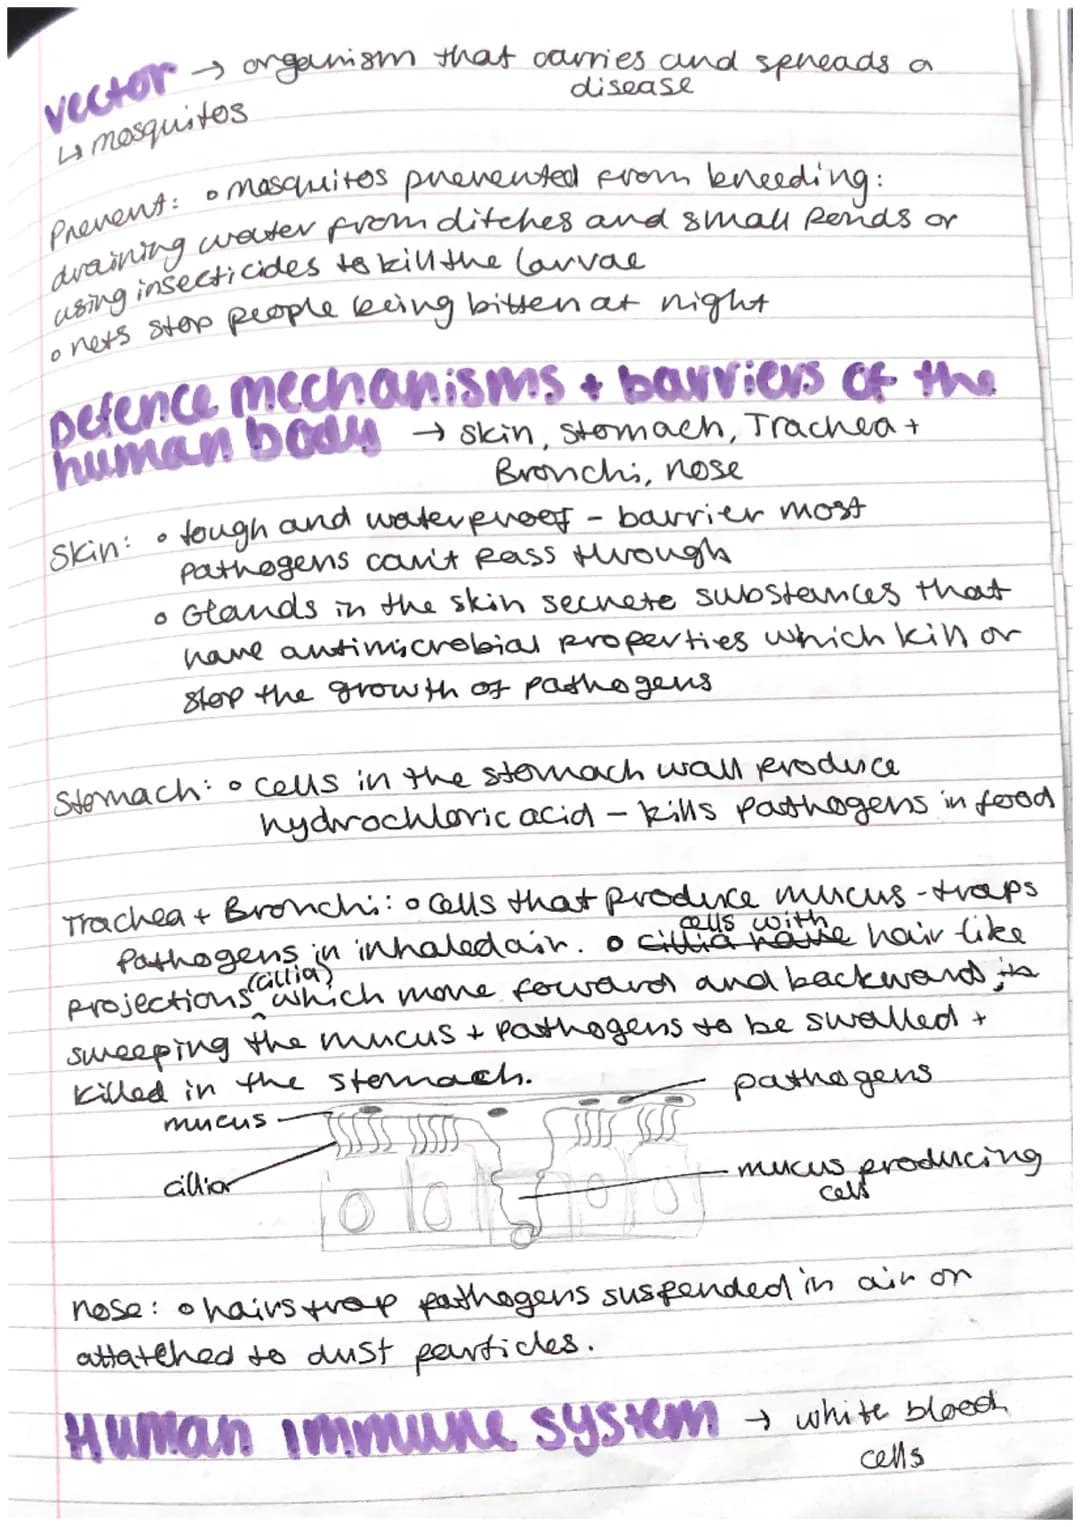 vector → organism that carries and spreads a
disease
↳ mosquitos
Prevent: • mosquitos prevented from breeding:
draining water from ditches and small ponds or
using insecticides to kill the larvae
• nets stop people being bitten at night
Defence mechanisms + barriers of the
human body → skin, stomach, Trachea +
Bronchi, nose
Skin: • tough and waterproof - barrier most
pathogens can't pass through
• Glands in the skin secrete substances that
have antimicrobial properties which kill or
stop the growth of pathogens
Stomach: • cells in the stomach wall produce
hydrochloric acid - kills pathogens in food
Trachea + Bronchi: • cells that produce mucus - traps
cells with
pathogens in inhaled air. • cillia have hair like
(cillia)
projections which move foward and backward, is
sweeping the mucus + pathogens to be swalled +
killed in the stomach.
pathogens
mucus
mucus producing
cell
cillia
nose: • hairs trap pathogens suspended in air or
attatched to dust particles.
Human immune system → white blood
cells